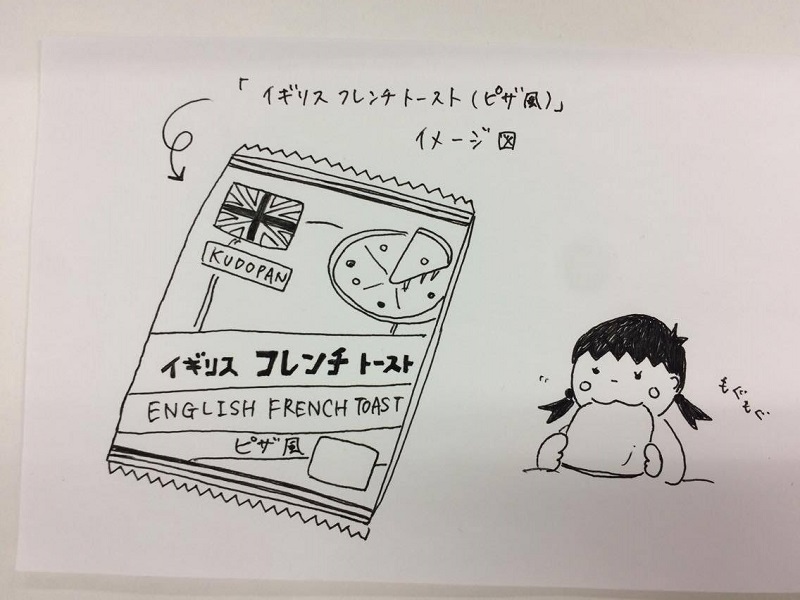 「イギリス フレンチトースト(ピザ風)」
イメージ図
KUDOPAN
イギリス フレンチ トースト
ENGLISH FRENCH TOAST
ピザ風
もぐ
もぐ